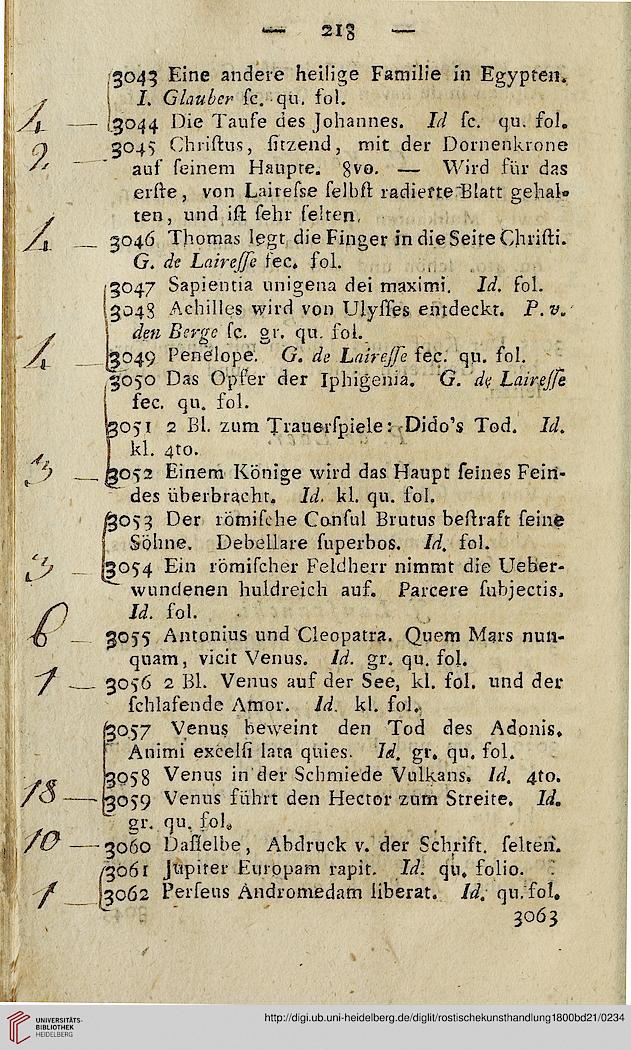 — 218 —
3043 Eine andere heilige Familie in Egypten.
I. Glauber ſc. qu. fol.
4 — 3044 Die Taufe des Johannes. Id ſc. qu. fol.
2. — 3045 Chriſtus, ſitzend, mit der Dornenkrone
auf ſeinem Haupte. 8vo. — Wird für das
erſte, von Laireſse ſelbſt radierte Blatt gehal-
ten, und iſt ſehr ſelten.
4 — 3046 Thomas legt die Finger in die Seite Chriſti.
G. de Laireſſe fec. fol.
3047 Sapientia unigena dei maximi. Id. fol.
3048 Achilles wird von Ulyſſes entdeckt. P. v.
den Berge ſc. gr. qu. fol.
4 — 3049 Penelope. G. de Laireſſe fec. qu. fol.
3050 Das Opfer der Iphigenia. G. de Laireſſe
fec. qu. fol.
3051 2 Bl. zum Trauerſpiele: Dido's Tod. Id.
kl. 4to.
3 — 3052 Einem Könige wird das Haupt ſeines Fein-
des überbracht. Id. kl. qu. fol.
3053 Der römiſche Conſul Brutus beſtraft ſeine
Söhne. Debellare ſuperbos. Id. fol.
3 — 3054 Ein römiſcher Feldherr nimmt die Ueber-
wundenen huldreich auf. Parcere ſubjectis.
Id. fol.
6 — 3055 Antonius und Cleopatra. Quem Mars nun-
quam, vicit Venus. Id. gr. qu. fol.
1 — 3056 2 Bl. Venus auf der See, kl. fol. und der
ſchlafende Amor. Id. kl. fol.
3057 Venus beweint den Tod des Adonis.
Animi excelſi lata quies. Id. gr. qu. fol.
3058 Venus in der Schmiede Vulkans. Id. 4to.
18 — 3059 Venus führt den Hector zum Streite. Id.
gr. qu. fol.
10 — 3060 Daſſelbe, Abdruck v. der Schrift. ſelten.
3061 Jupiter Europam rapit. Id. qu. folio.
1 — 3062 Perſeus Andromedam liberat. Id. qu. fol.
3063
UNIVERSITÄTS-
BIBLIOTHEK
HEIDELBERG
http://digi.ub.uni-heidelberg.de/diglit/rostischekunsthandlung1800bd21/0234